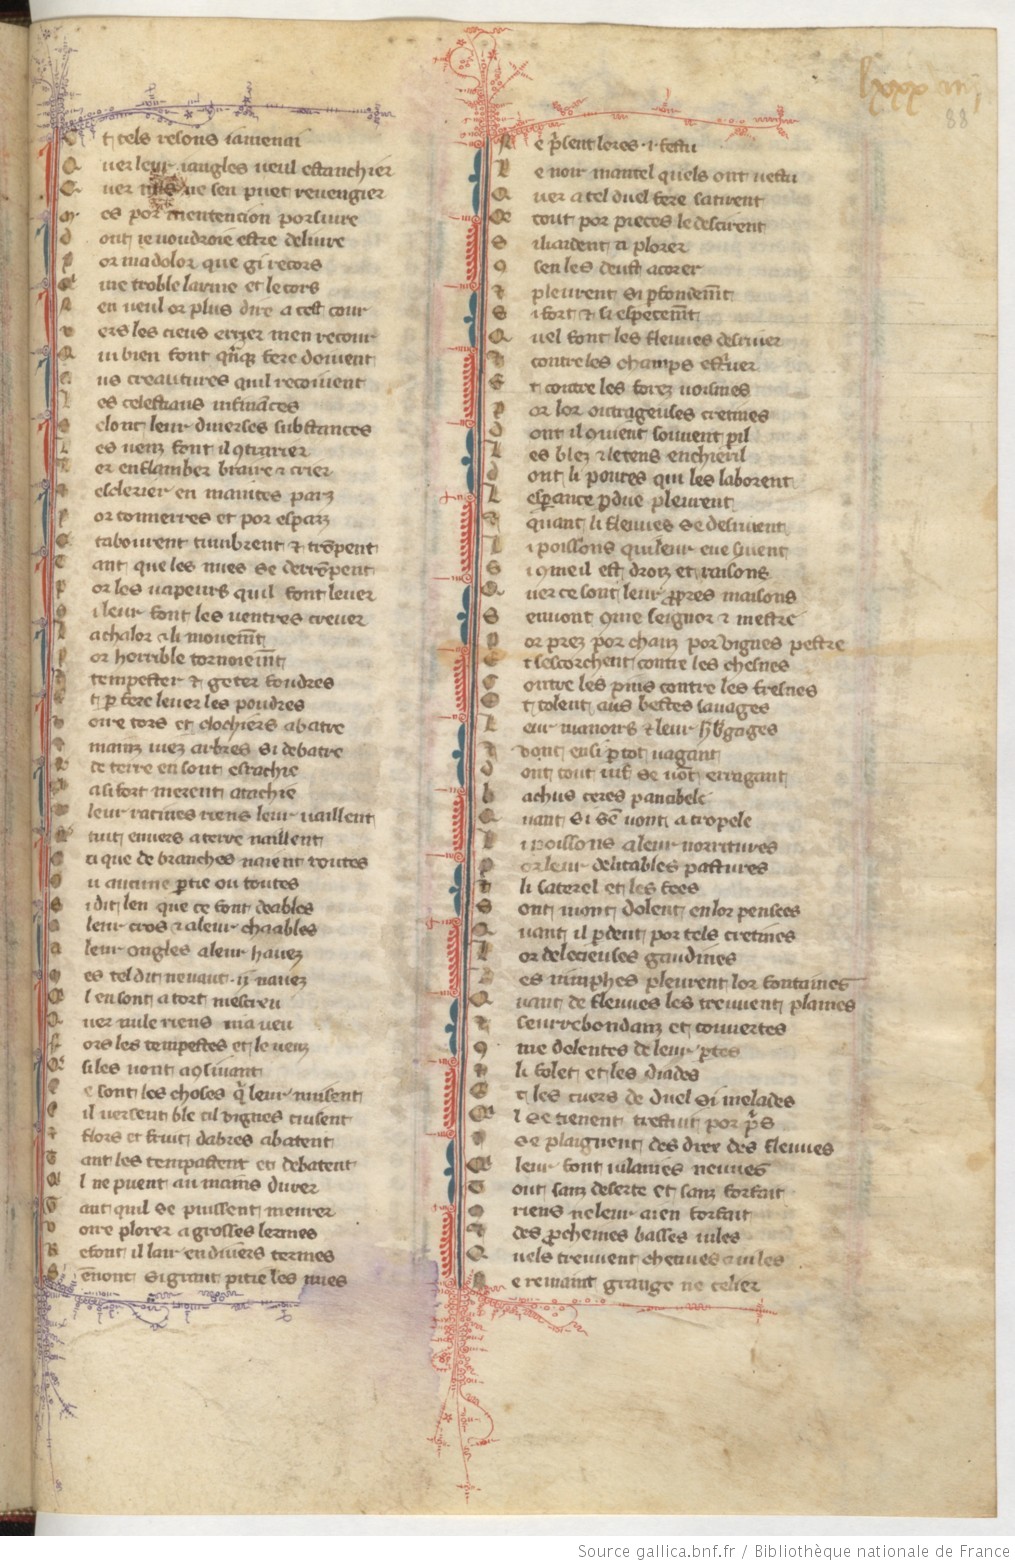 lxxx viij
88
E t tels resons iamenai
Q uer leur iangles veul estanchier
Q uer nus ne sen puet revengier
M es por mentencion porsivre
D ont ie voudroie estre delivre
P or ma dolor que gi recors
Q ui me troble lame et le cors
N en veul or plus dire a cest tour
V ers les cieus errer men retour
Q ui bien font qnq fere doivent
A us creatures quil recoivent
L es celestiaus influances
S elonc leur diverses substances
L es venz font il 9trarier
L er enflamber braire & crier
esclerier en maintes parz
P or tonnerres et por esparz
tabourent timbrent & tropent
T ant que les nues se derropent
P or les vapeurs quil font lever
S i leur font les ventres crever
L a chalor & li movemt
P or horrible tornoiemt
tempester & geter foudres
E t p terre lever les poudres
V oire tors et clochiers abatre
E t mainz viez arbres si debatre
de terre en sont esrachie
ia si fort nierent atachie
Q leur racines riens leur vaillent
Q tuit envers a terre naillent
O u que de branches naient routes
O u aucune ptie ou toutes
S i dit len que ce font deables
A leur cros & a leur chaables
A leur ongles a leur havez
M es tel dit ne vaut .ij. navez
Q l en sont a tort mescreu
Q uer nule riens ni a veu
F ors les tempestes et le venz
Q si les vont a9sivant
C e sont les choses q leur nuisent
C il versent ble cil vignes cuisent
E t flors et fruit dabres abatent
T ant les tempestent et debatent
Q l ne puent au rains durer
T ant quil se puissent meurer
V oire plorer a grosses lermes
R efont il lair en divers termes
S en ont si grant pitie les nues
N e psent lores .i. festu
L e noir mantel quels ont vestu
Q uer a tel duel fere satirent
Q tout por pieces le descirent
S i li aident a plorer
9 sen les deust acorer
E t pleurent si pfondemt
S i fort & si espesemt
Q uel font les fleuves desriver
E t contre les champs estriver
E t contre les forez voisines
P or lor outrageuses cretines
D ont il 9vient souvent pil
L es blez & le tens enchieril
D ont li povres qui les laborent
L esperance pdue pleurent
E t quant li fleuves se desrivent
L i poissons qui leur eue sivent
S i 9me il est droiz et raisons
Q uer ce sont leur ppres maisons
S en vont 9me seignor & mestre
P or prez por chanz por vignes pestre
E t sescorchent contre les chesnes
E t outre les pins contre les fresnes
E t tolent aus bestes sauvages
L eur manoirs & leur hbgages
E t vont ensi ptot vagant
D ont tout vif se vot erragant
B achus ceres pan cibele
Q uant si sen vont a tropele
L i poissons a leur norretures
P or leur delitables pastures
E t li saterel et les fees
S ont mont dolent en lor pensees
Q uant il pdent por tels cretines
L or delecieuses gaudines
L es nimphes pleurent lor fontaines
Q uant de fleuves les treuvent plaines
E t seurrebondanz et couvertes
9 me dolentes de leur ptes
E t li folet et les driades
E t les cuers de duel si malades
Q l se tienent trestuit por ps
E t se plaignent des diex des fleuves
Q leur font vilanies neuves
T out sanz deserte et sanz forfait
9 riens ne leur aien forfait
E t des pchienes basses viles
Q uels treuvent chetives & viles
N e remaint grange ne celier